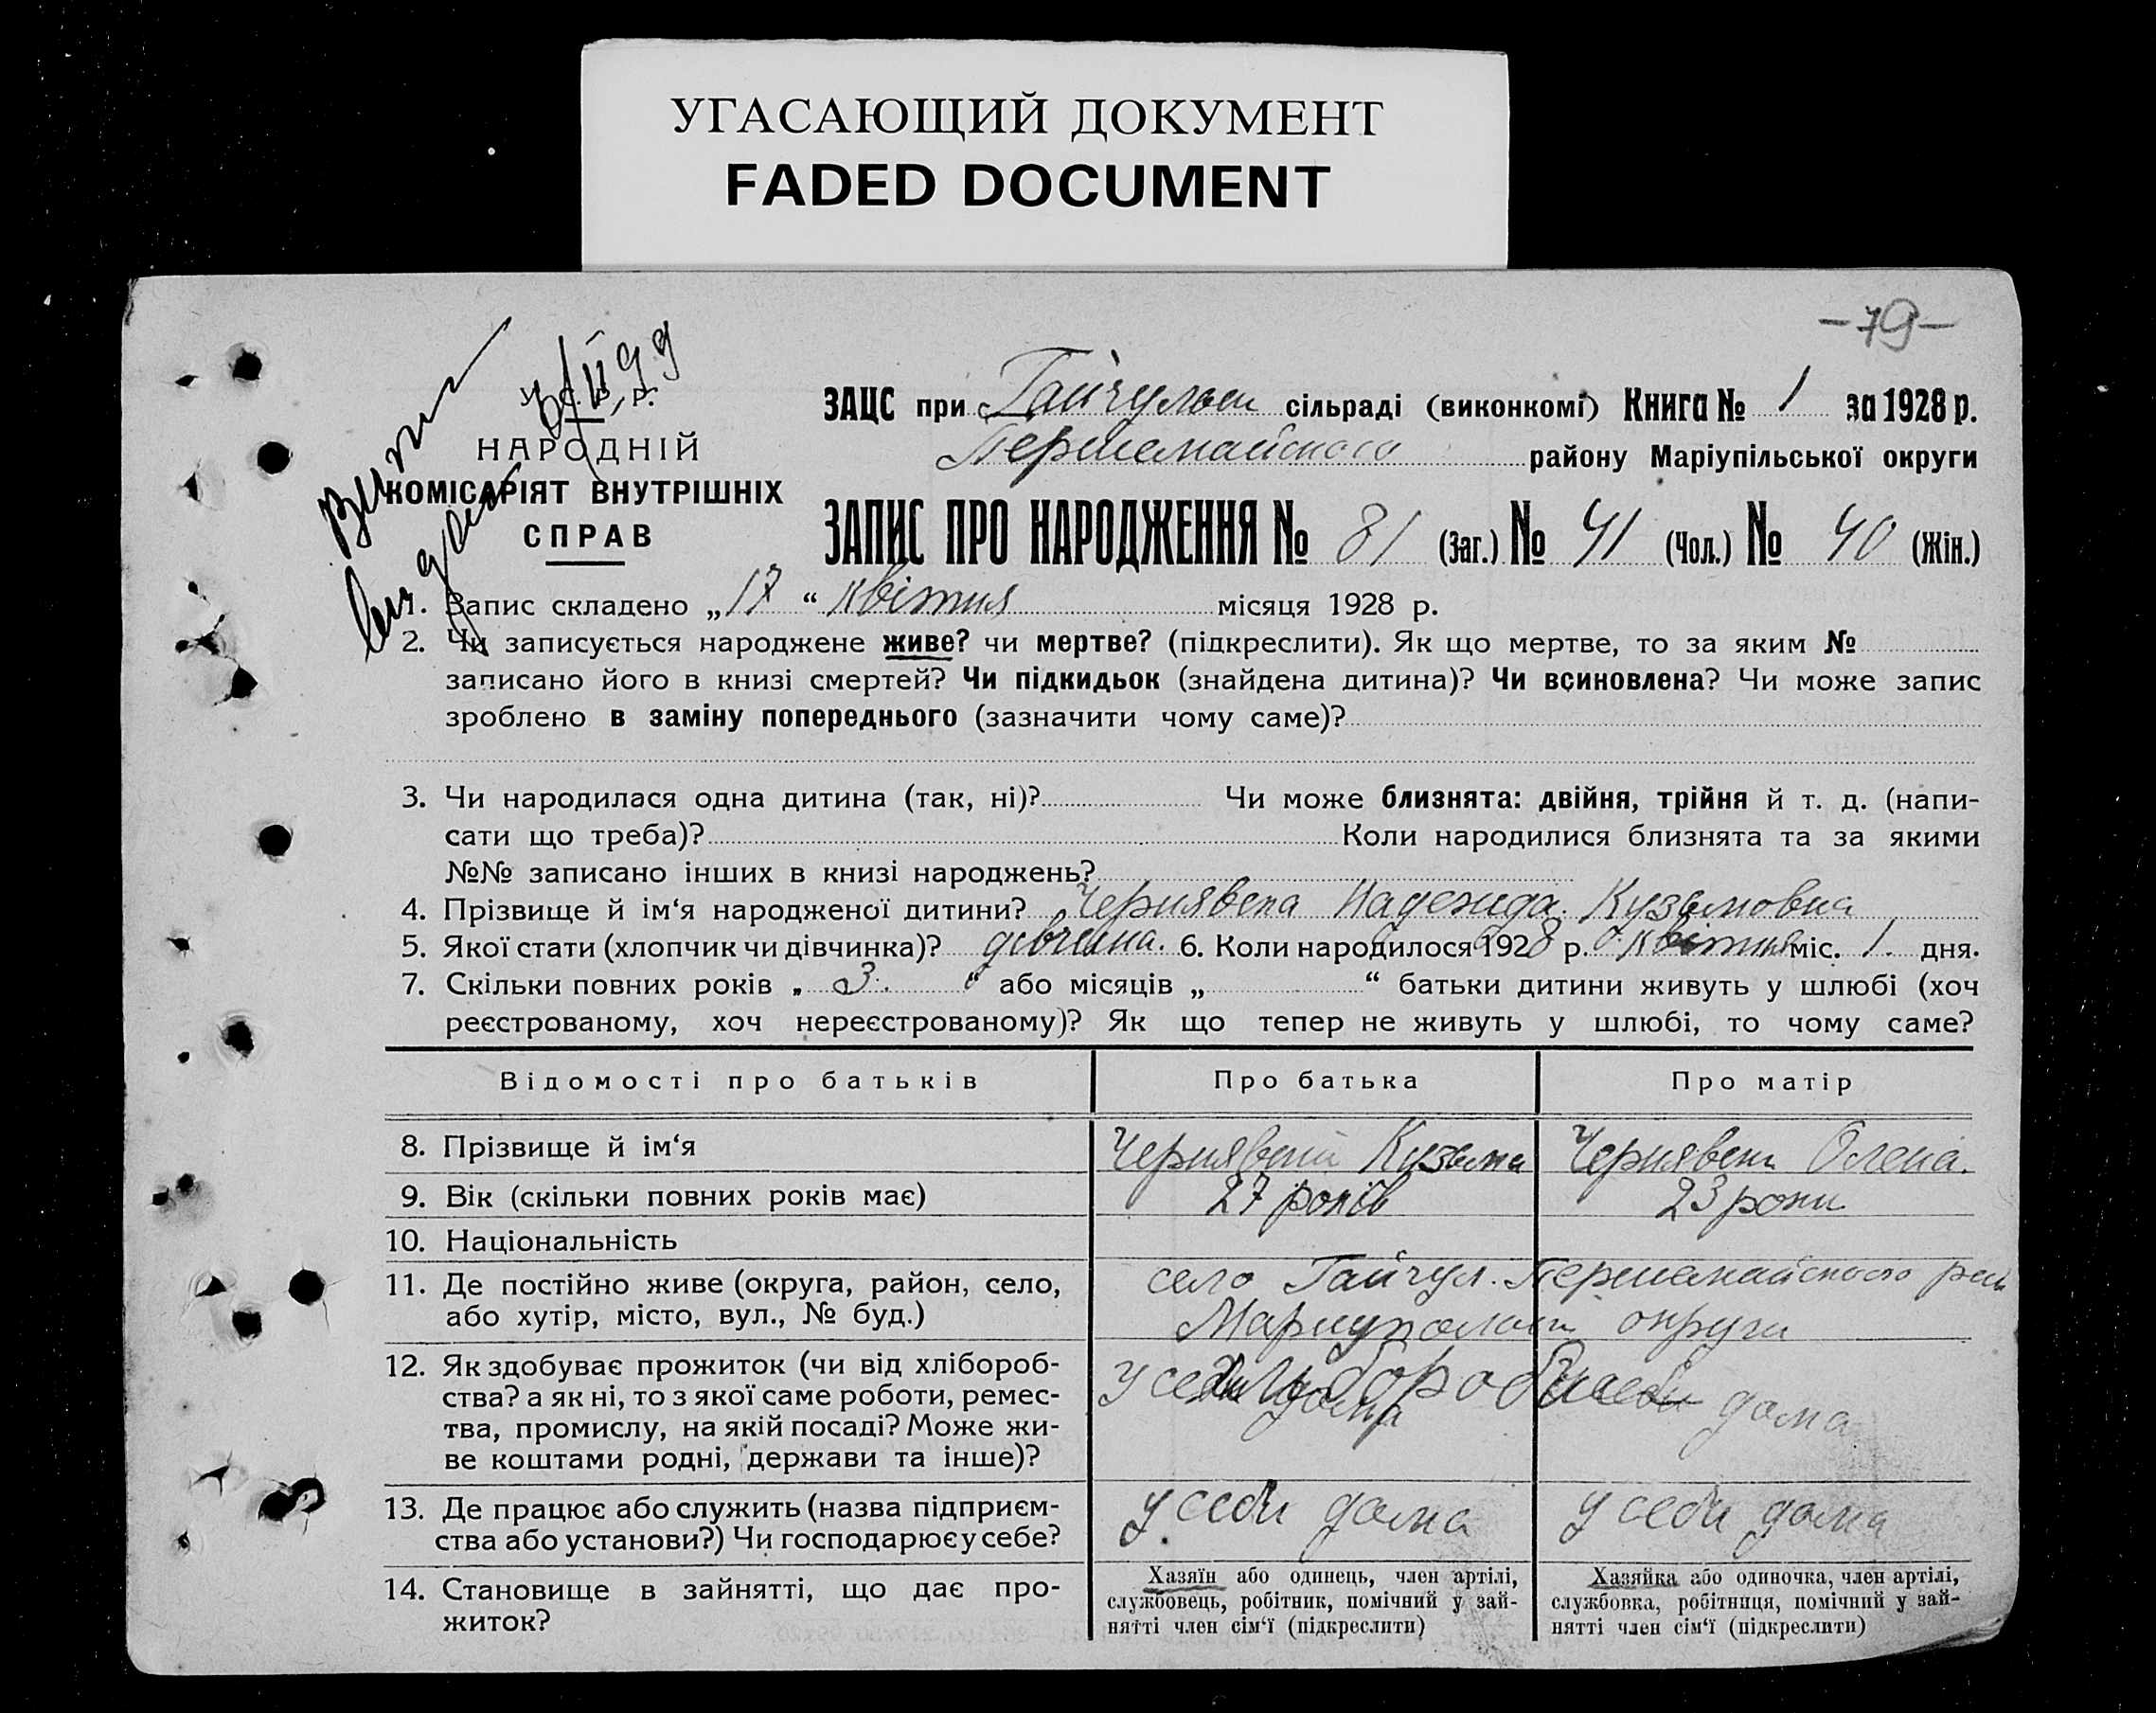 УГАСАЮЩИЙ ДОКУМЕНТ
FADED DOCUMENT
–79–
У. С. Р. Р.
НАРОДНІЙ
КОМІСАРІЯТ ВНУТРІШНІХ
СПРАВ
ЗАЦС при Гайчульск сільраді (виконкомі) Книга № 1 за 1928 р.
Першемайского району Маріупільської округи
ЗАПИС ПРО НАРОДЖЕННЯ № 81 (Заг.) № 41 (Чол.) № 40 (Жін.)
1. Запис складено „17“ квітня місяця 1928 р.
2. Чи записується народжене живе? чи мертве? (підкреслити). Як що мертве, то за яким №
записано його в книзі смертей? Чи підкидьок (знайдена дитина)? Чи всиновлена? Чи може запис
зроблено в заміну попереднього (зазначити чому саме)?
3. Чи народилася одна дитина (так, ні)? Чи може близнята: двійня, трійня й т. д. (напи-
сати що треба)? Коли народилися близнята та за якими
№№ записано інших в книзі народжень?
4. Прізвище й ім‘я народженої дитини? Чернявска Надежида Кузьмовна
5. Якої стати (хлопчик чи дівчинка)? дівчина. 6. Коли народилося 1928 р. квітня міс. 1. дня.
7. Скільки повних років „ 3. “ або місяців „ “ батьки дитини живуть у шлюбі (хоч
реєстрованому, хоч нереєстрованому)? Як що тепер не живуть у шлюбі, то чому саме?
Відомості про батьків Про батька Про матір
8. Прізвище й ім‘я Чернявский Кузьма Чернявск Олена.
9. Вік (скільки повних років має) 27 років 23 роки
10. Національність
11. Де постійно живе (округа, район, село, село Гайчул. Першемайского рай
або хутір, місто, вул., № буд.) округи
12. Як здобуває прожиток (чи від хлібороб-
ства? а як ні, то з якої саме роботи, ремес- дома
тва, промислу, на якій посаді? Може жи-
ве коштами родні, держави та інше)?
13. Де працює або служить (назва підприєм- у себи дома у себи дома
ства або установи?) Чи господарює у себе?
14. Становище в зайнятті, що дає про-
житок?
Хазяїн або одинець, член артілі,
службовець, робітник, помічний у зай-
нятті член сім‘ї (підкреслити)
Хазяйка або одиночка, член артілі,
службовка, робітниця, помічний у зай-
нятті член сім‘ї (підкреслити)